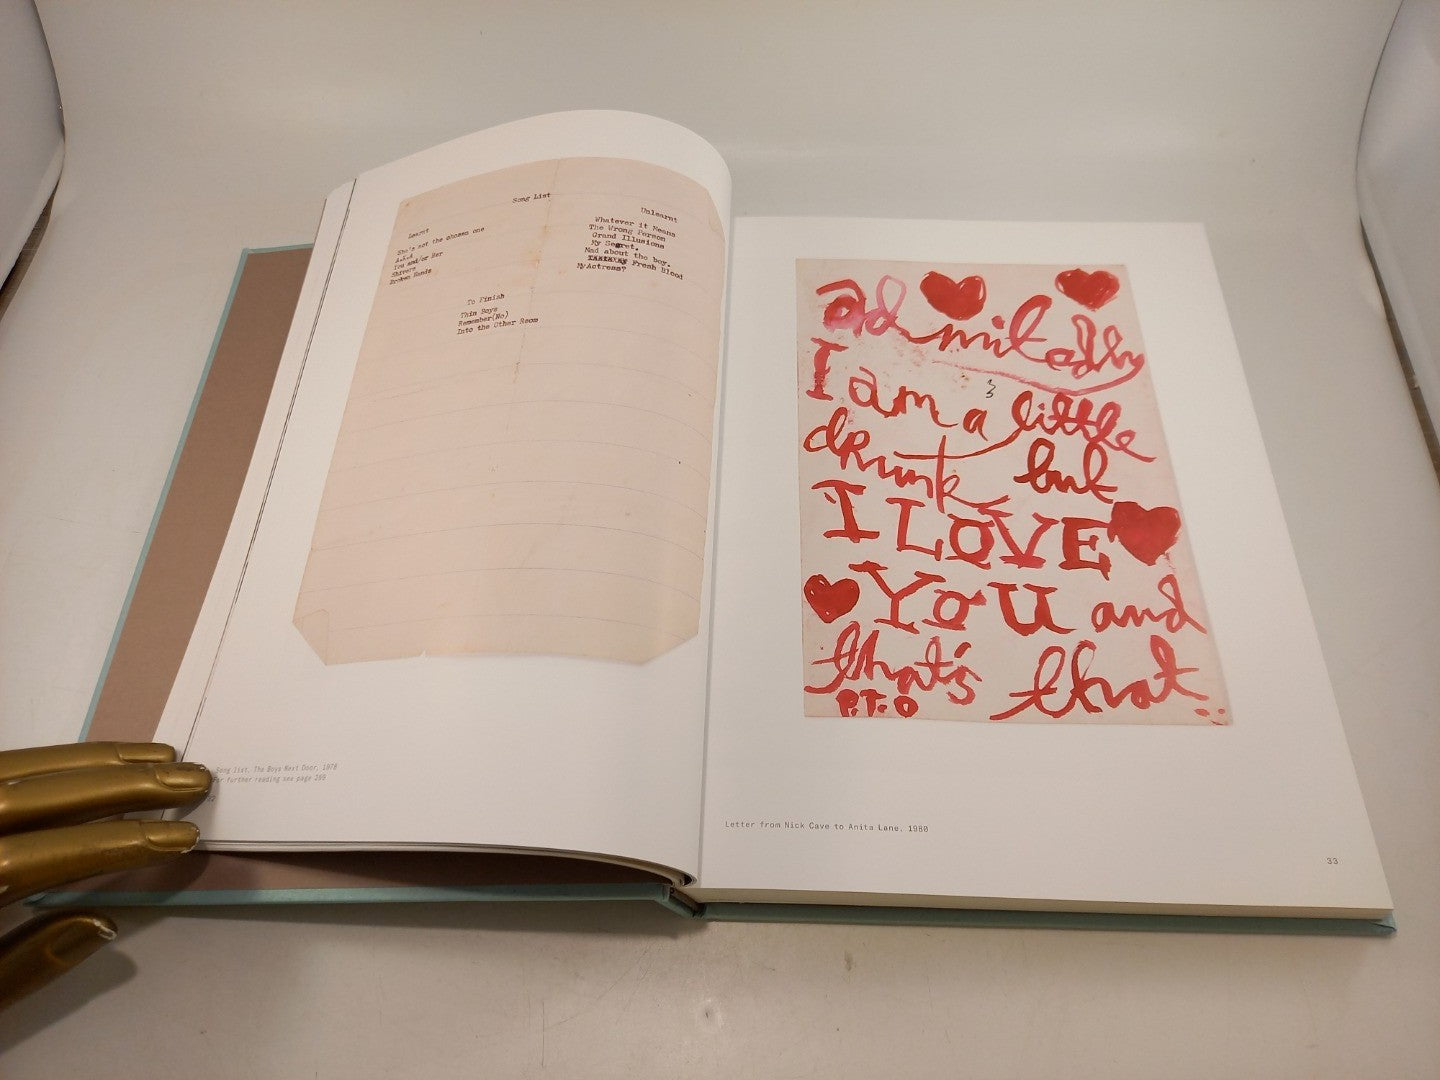 Song List
Learnt
She's not the chosen one
A.A.A
Iva and/or Her
Shivers
Broken Hands
Unlearnt
Whatever it Means
The Wrong Person
Grand Illusions
My Secret.
Mad about the boy.
Fresh Blood
My Actress?
To Finish
Thin Boys
Remember(No)
Into the Other Room
Song list, The Boys Next Door, 1978
For further reading see page
ad mitedly
I am a little
drunk, but
I LOVE
YOU and
that's that
P.T.O
Letter from Nick Cave to Anita Lane, 1980
33